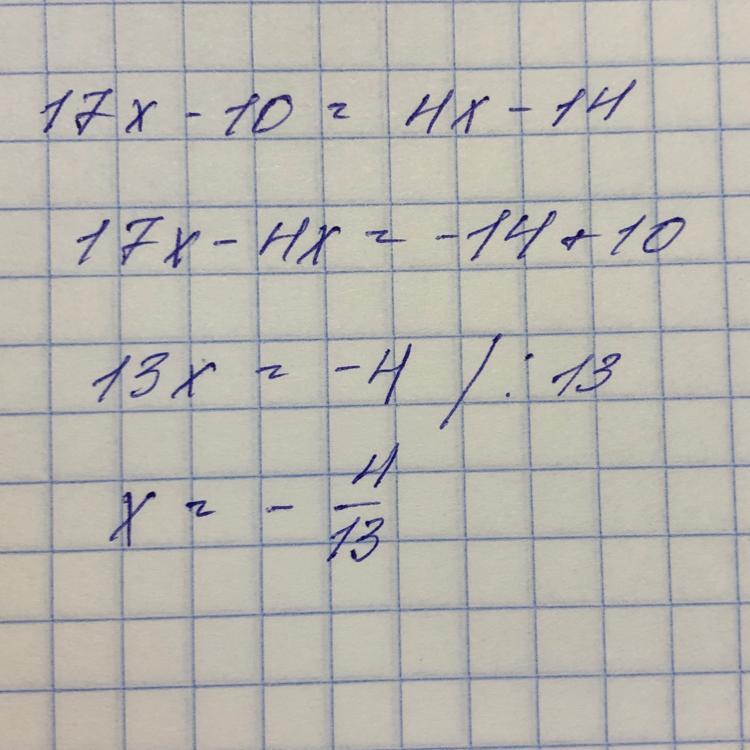 17x - 10 = 4x - 14
17x - 4x = -14 + 10
13x = -4 / : 13
x = - 4/13